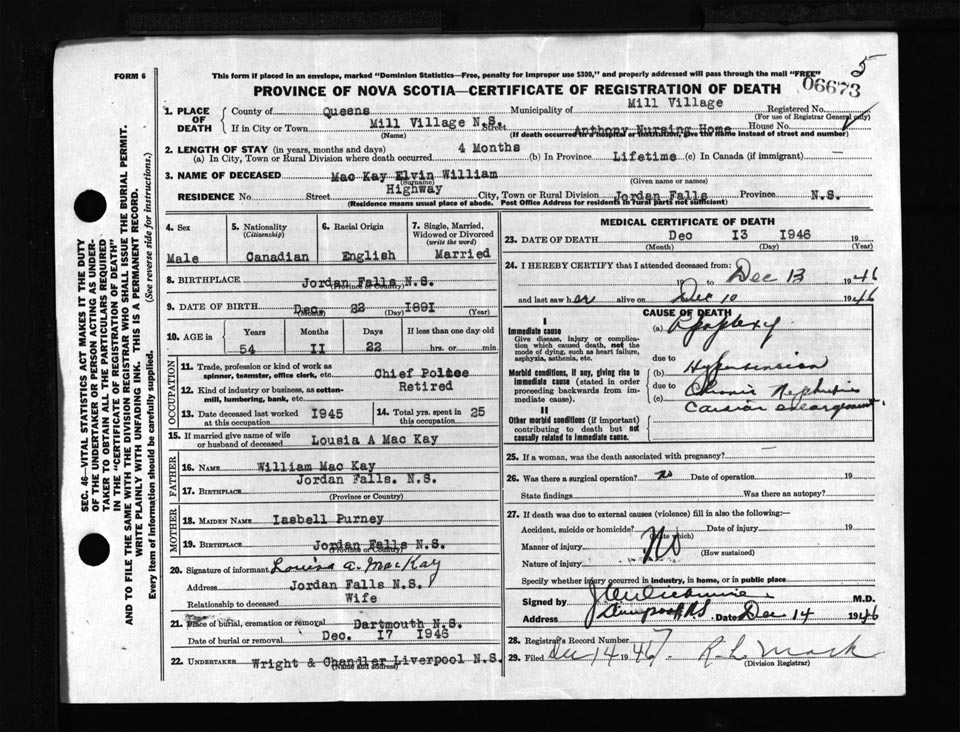 5
FORM 6
This form if placed in an envelope, marked "Dominion Statistics—Free, penalty for improper use $300," and properly addressed will pass through the mail "FREE"
06673
PROVINCE OF NOVA SCOTIA—CERTIFICATE OF REGISTRATION OF DEATH
1. PLACE OF DEATH
County of Queens Municipality of Mill Village Registered No.
(For use of Registrar General only)
If in City or Town Mill Village N.S. Street Anthony Nursing Home House No.
(Name) (If death occurred in a hospital or institution, give the name instead of street and number)
2. LENGTH OF STAY (in years, months and days)
(a) In City, Town or Rural Division where death occurred 4 Months (b) In Province Lifetime (c) In Canada (if immigrant) —
3. NAME OF DECEASED Mac Kay Elvin William
(Surname) (Given name or names)
RESIDENCE No. Street Highway City, Town or Rural Division Jordan Falls Province N.S.
(Residence means usual place of abode. Post Office Address for residents in rural parts not sufficient)
4. Sex Male
5. Nationality (Citizenship) Canadian
6. Racial Origin English
7. Single, Married, Widowed or Divorced (write the word) Married
8. BIRTHPLACE Jordan Falls N.S.
(Province or Country)
9. DATE OF BIRTH Dec. 22 I89I
(Month) (Day) (Year)
10. AGE in Years Months Days If less than one day old
54 II 22 hrs. or min.
OCCUPATION
11. Trade, profession or kind of work as spinner, teamster, office clerk, etc. Chief Police
12. Kind of industry or business, as cotton-mill, lumbering, bank, etc. Retired
13. Date deceased last worked at this occupation I945
14. Total yrs. spent in this occupation 25
15. If married give name of wife or husband of deceased Lousia A Mac Kay
FATHER
16. NAME William Mac Kay
17. BIRTHPLACE Jordan Falls. N.S.
(Province or Country)
MOTHER
18. MAIDEN NAME Iasbell Purney
19. BIRTHPLACE Jordan Falls N.S.
(Province or Country)
20. Signature of informant Louisa A. MacKay
Address Jordan Falls N.S.
Relationship to deceased Wife
21. Place of burial, cremation or removal Dartmouth N.S.
Date of burial or removal Dec. I7 I946
22. UNDERTAKER Wright & Chandler Liverpool N.S.
(Name and address)
MEDICAL CERTIFICATE OF DEATH
23. DATE OF DEATH Dec I3 I946 19
(Month) (Day) (Year)
24. I HEREBY CERTIFY that I attended deceased from:
19 to Dec 13 1946
and last saw h alive on Dec 10 1946
CAUSE OF DEATH
I
Immediate cause
Give disease, injury or complication which caused death, not the mode of dying, such as heart failure, asphyxia, asthenia, etc.
(a) Apoplexy
due to
Morbid conditions, if any, giving rise to immediate cause (stated in order proceeding backwards from immediate cause).
(b) Hypertension
due to
(c) Chronic Nephritis
enlargement
II
Other morbid conditions (if important) contributing to death but not causally related to immediate cause.
25. If a woman, was the death associated with pregnancy?
26. Was there a surgical operation? no Date of operation 19
State findings Was there an autopsy?
27. If death was due to external causes (violence) fill in also the following:—
Accident, suicide or homicide? Date of injury 19
(State which)
Manner of injury No
(How sustained)
Nature of injury
Specify whether injury occurred in industry, in home, or in public place
Signed by M.D.
Address Liverpool NS Date Dec 14 1946
28. Registrar's Record Number
29. Filed Dec 14 1946 R. L. Mack
(Division Registrar)
SEC. 46—VITAL STATISTICS ACT MAKES IT THE DUTY
OF THE UNDERTAKER OR PERSON ACTING AS UNDERTAKER TO OBTAIN ALL THE PARTICULARS REQUIRED
IN THE "CERTIFICATE OF REGISTRATION OF DEATH"
AND TO FILE THE SAME WITH THE DIVISION REGISTRAR WHO SHALL ISSUE THE BURIAL PERMIT.
WRITE PLAINLY WITH UNFADING INK. THIS IS A PERMANENT RECORD.
Every item of information should be carefully supplied. (See reverse side for instructions.)